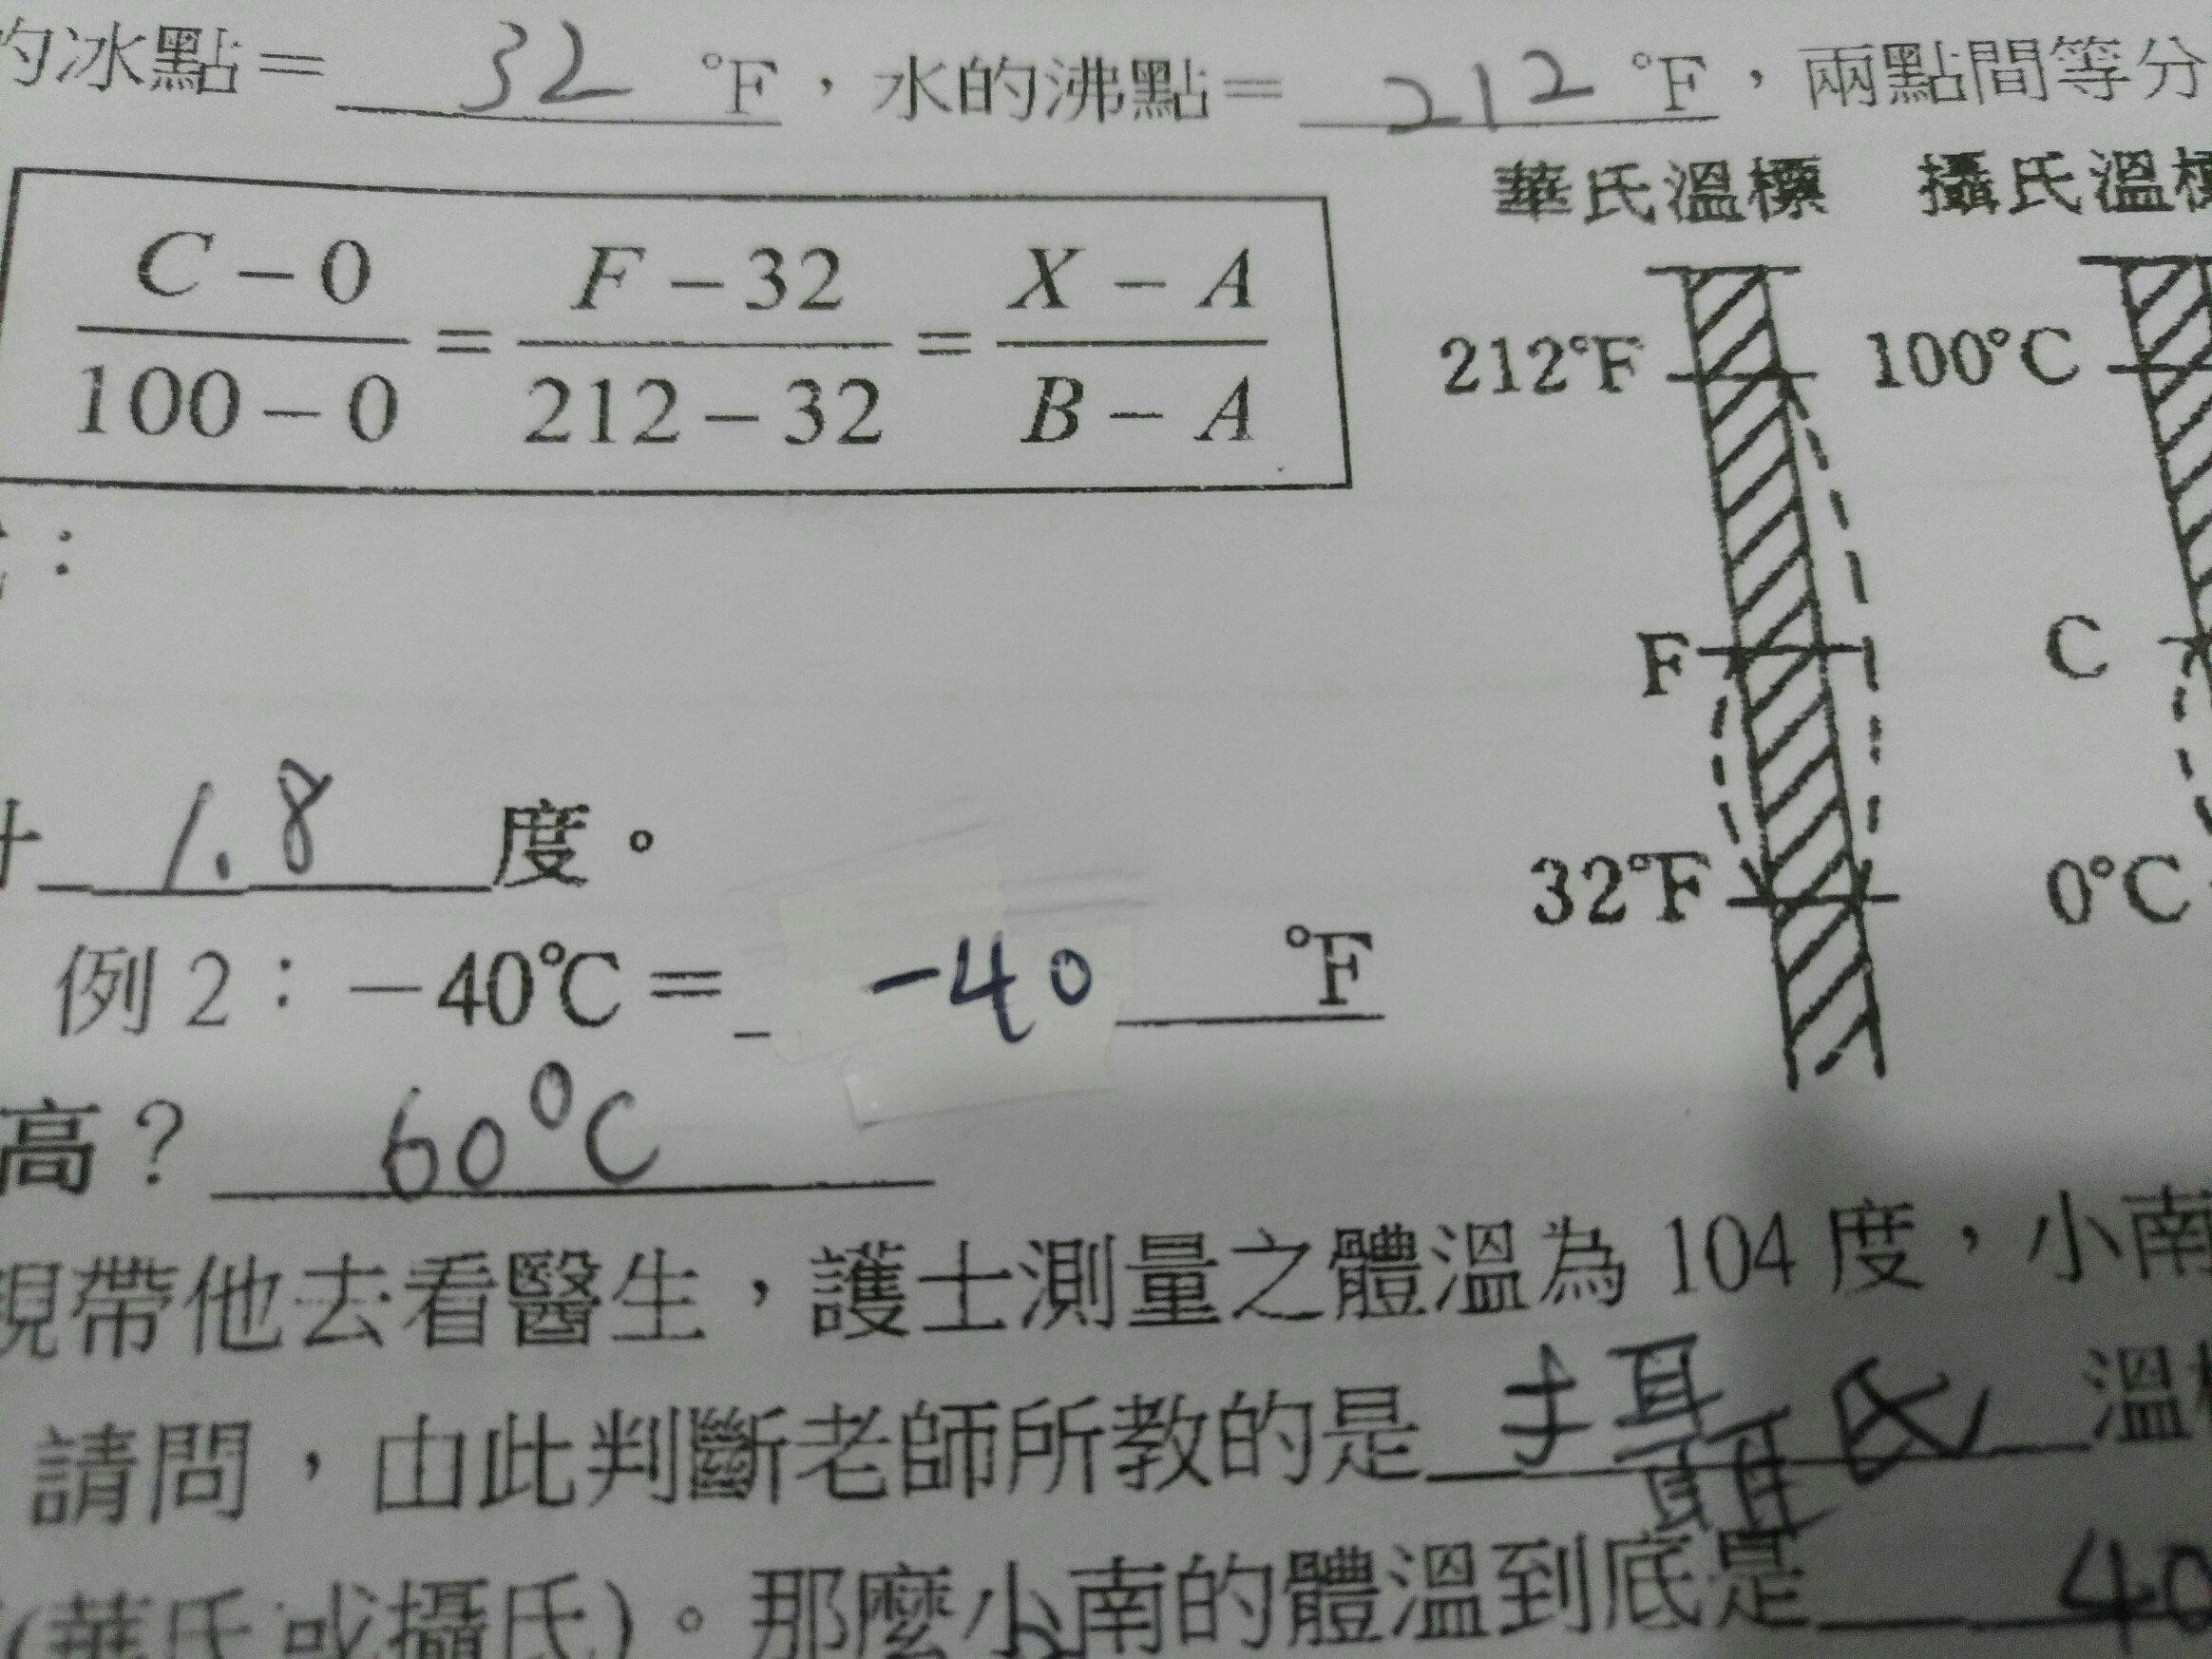 的冰點＝ 32 ℉，水的沸點＝ 212 ℉，兩點間等分
華氏溫標 攝氏溫標
C－0 / 100－0 = F－32 / 212－32 = X－A / B－A
212℉ 100℃
：
F C
1.8 度。
32℉ 0℃
例2：－40℃＝ -40 ℉
高？ 60℃
視帶他去看醫生，護士測量之體溫為 104 度，小南
請問，由此判斷老師所教的是 攝氏 溫標
(華氏或攝氏)。那麼小南的體溫到底是 40